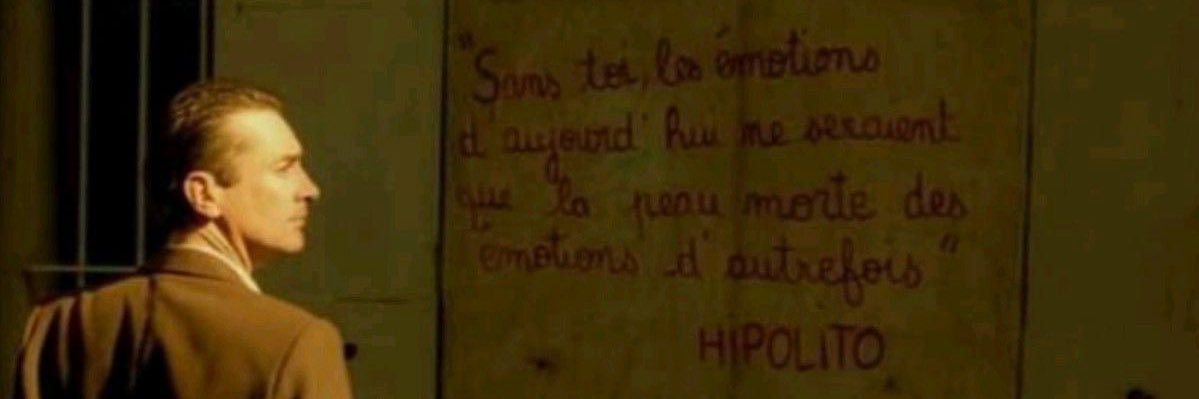 "Sans toi, les émotions
d'aujourd'hui ne seraient
que la peau morte des
émotions d'autrefois"
HIPOLITO